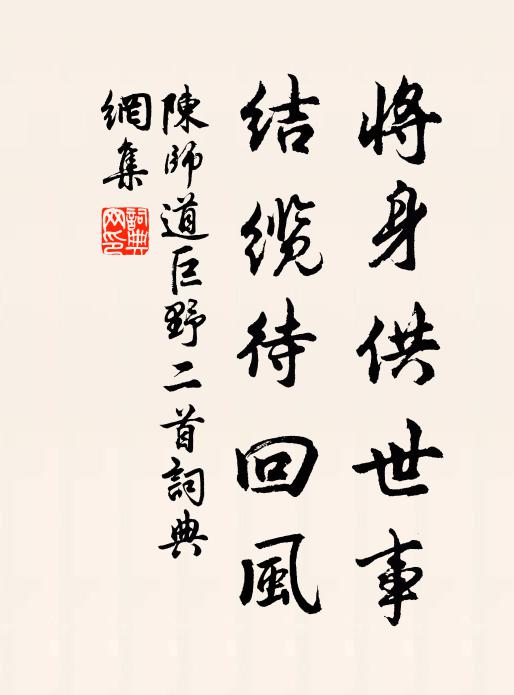 将身供世事
结缆待回風
陳師道巨野二首詞典
網集
詞典網印